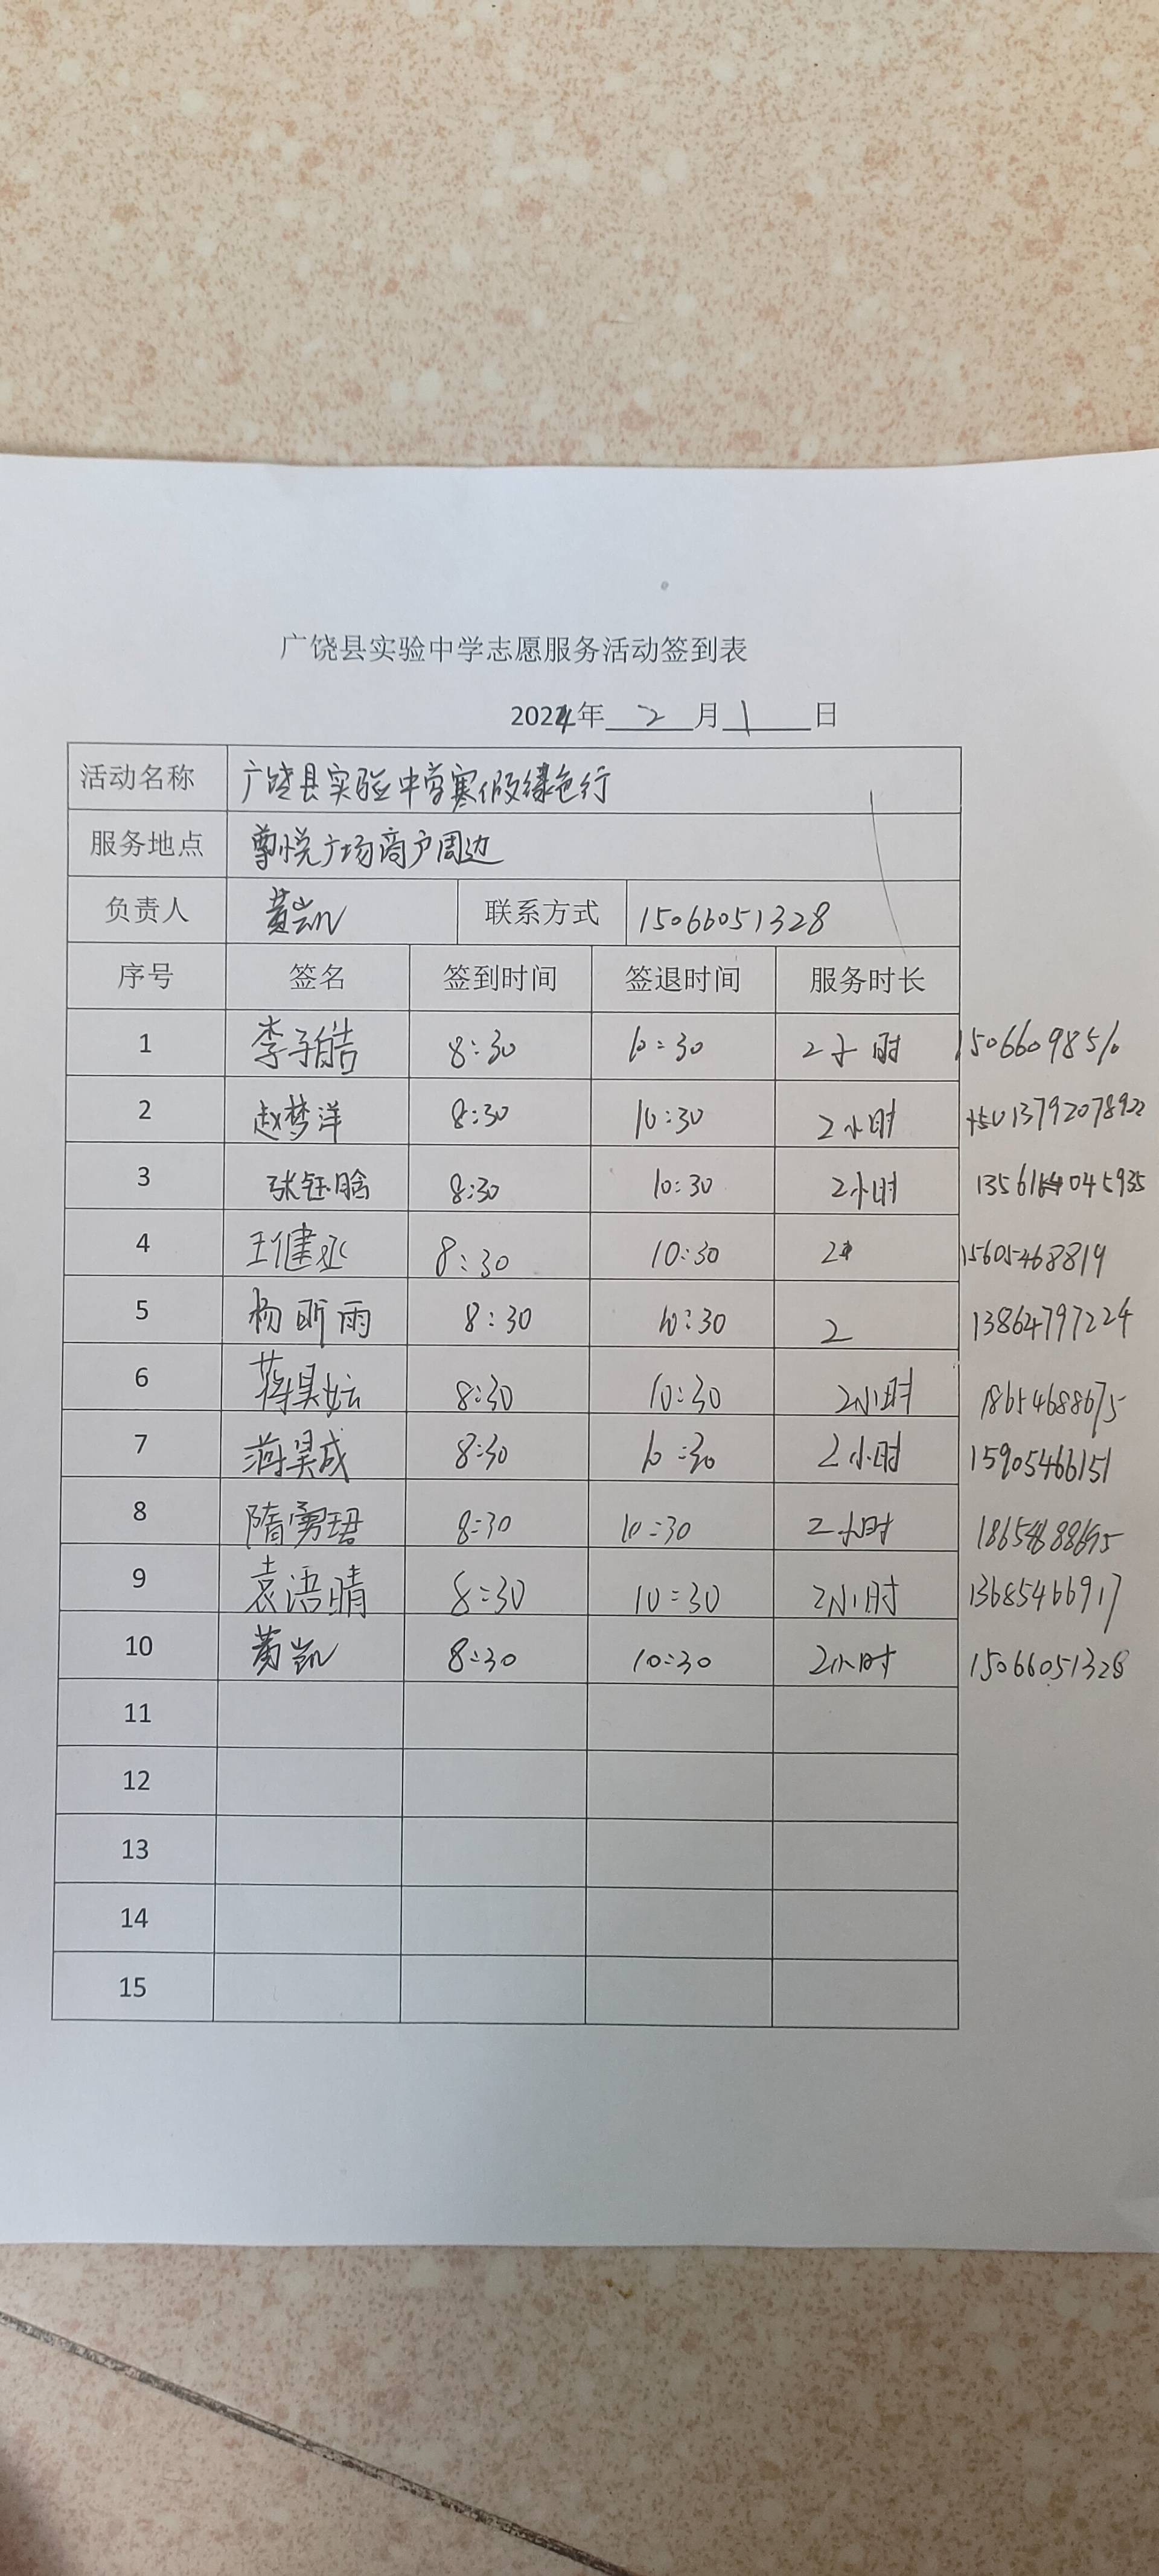 广饶县实验中学志愿服务活动签到表
2024年 2 月 1 日
活动名称 广饶县实验中学寒假绿色行
服务地点 尊悦广场商户周边
负责人 黄凯 联系方式 15066051328
序号 签名 签到时间 签退时间 服务时长
1 李子皓 8:30 10:30 2小时
2 赵梦洋 8:30 10:30 2小时 13792078922
3 张钰晗 8:30 10:30 2小时 13561045935
4 王健丞 8:30 10:30 2 15605468819
5 杨昕雨 8:30 10:30 2 13864797224
6 蒋昊妘 8:30 10:30 2小时 18654688675
7 蒋昊成 8:30 10:30 2小时 15905466151
8 隋勇珺 8:30 10:30 2小时
9 袁语晴 8:30 10:30 2小时 13685466917
10 黄凯 8:30 10:30 2小时 15066051328
11
12
13
14
15